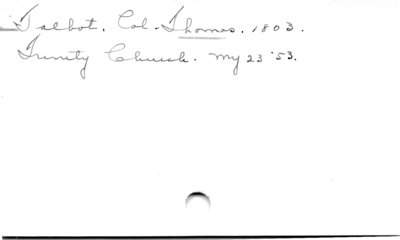 Talbot. Col. Thomas. 1803.
Trinity Church. My 23 '53.